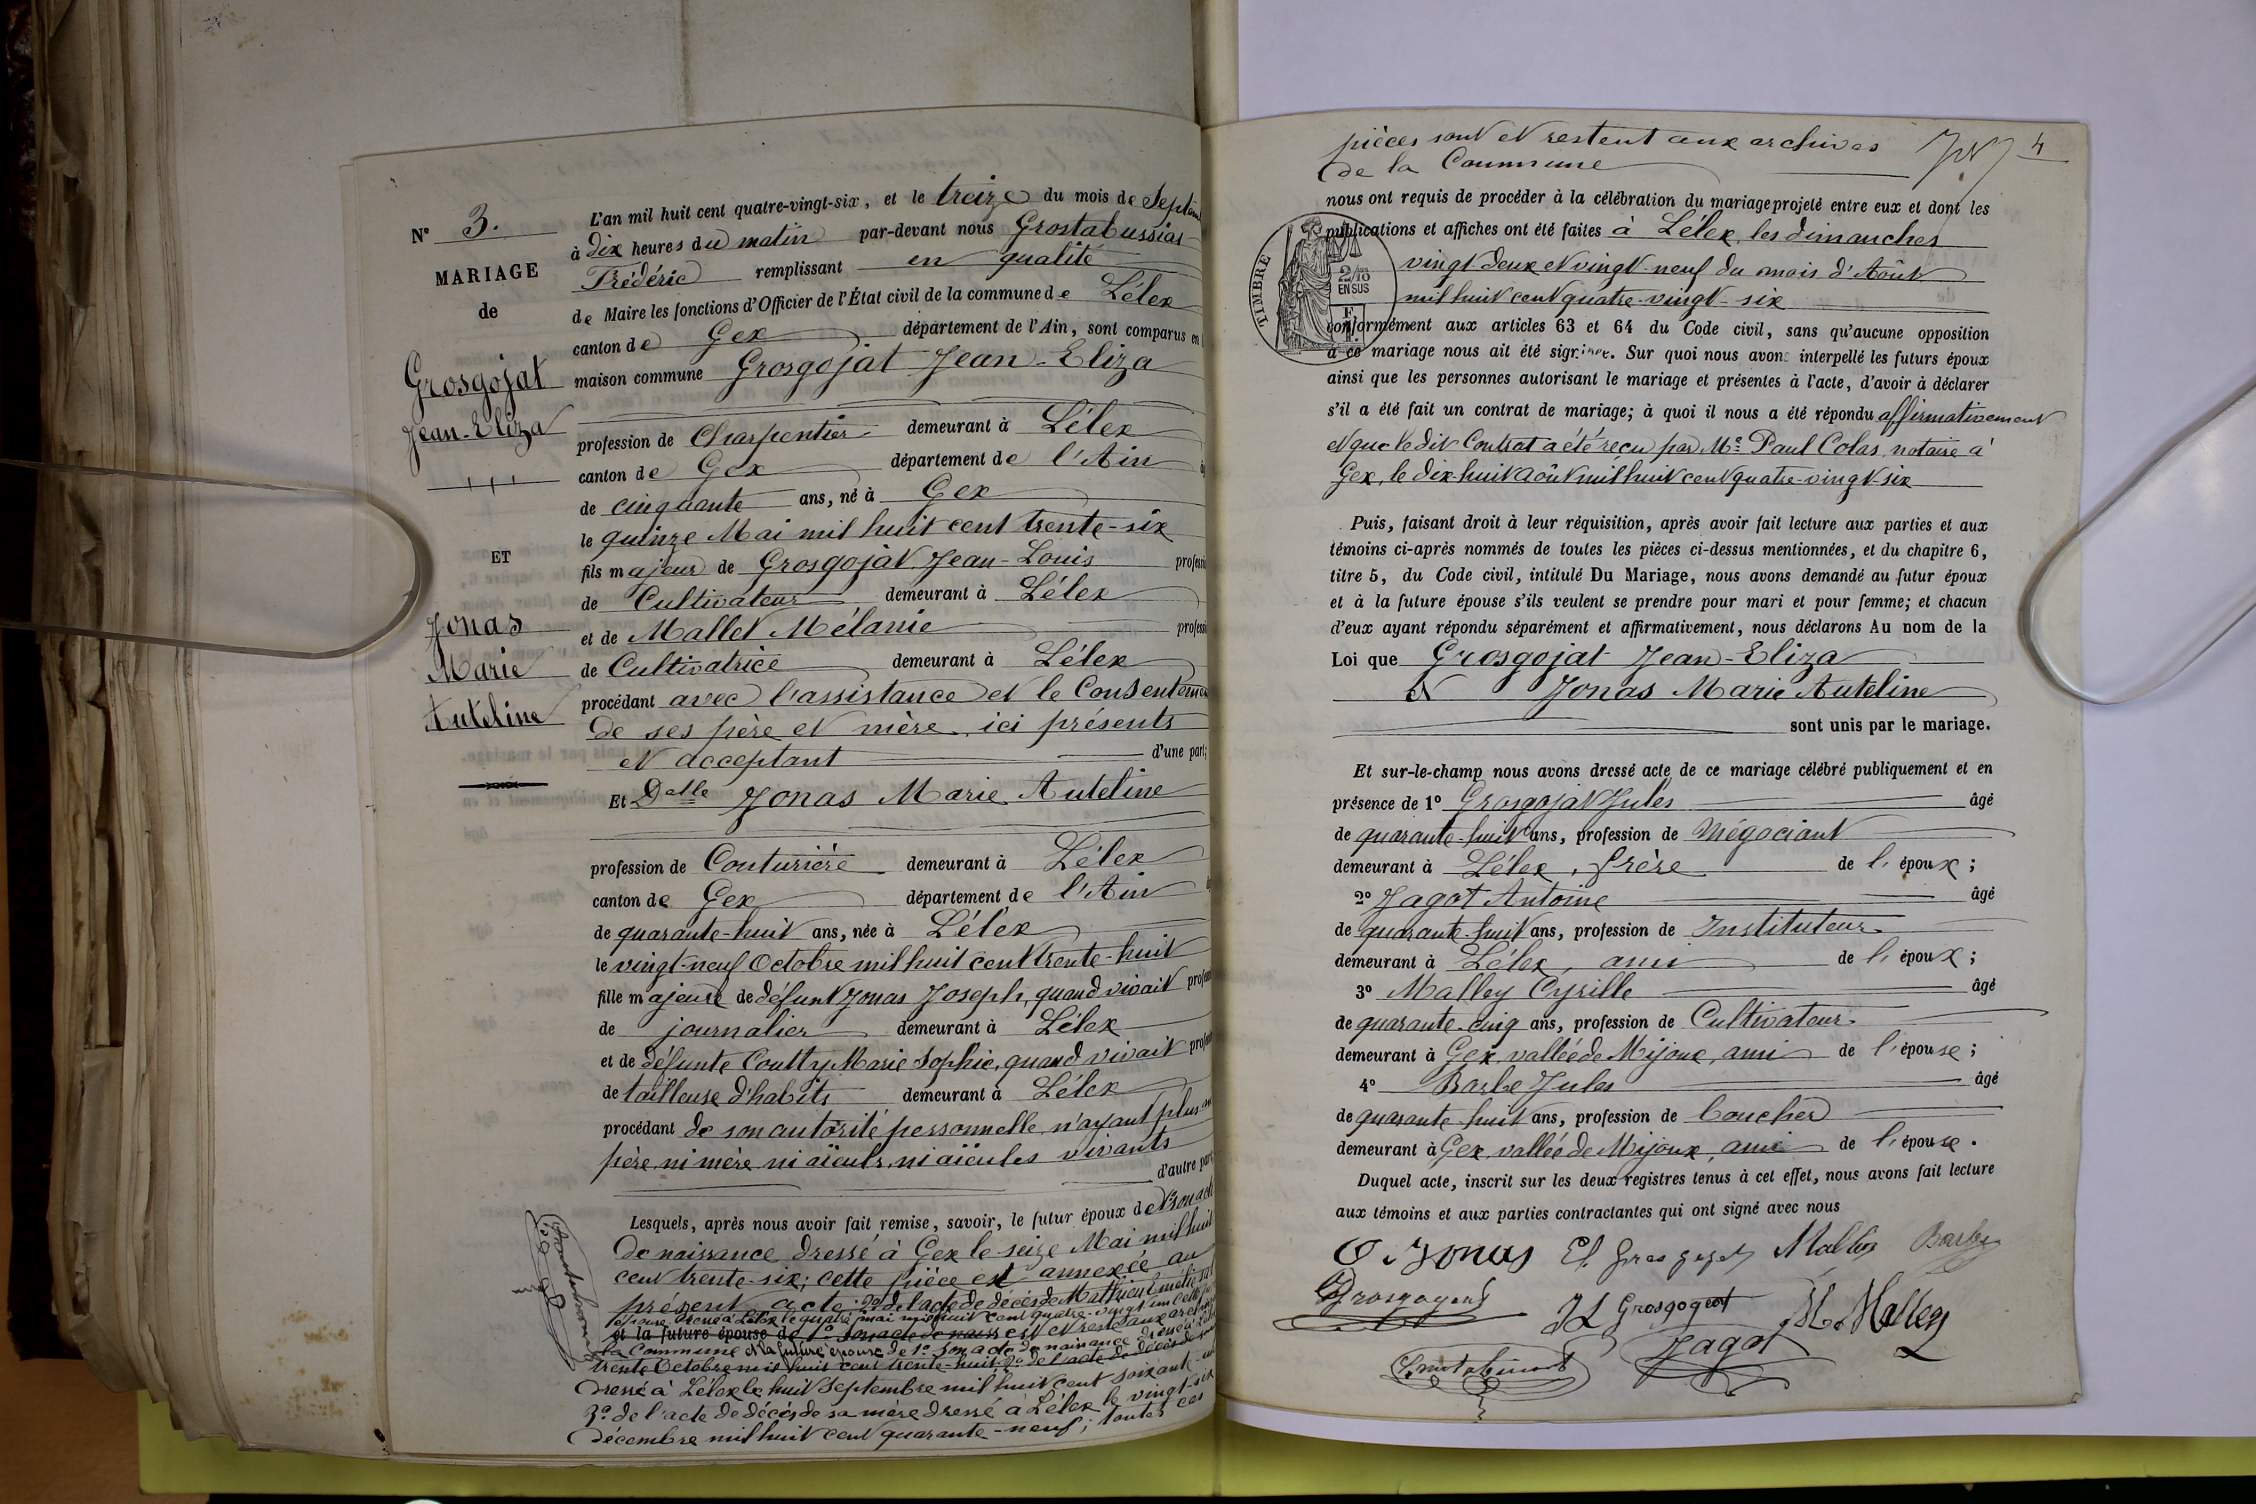 N° 3.
MARIAGE
de
Grosgojat
Jean-Eliza
ET
Jonas
Marie
Auteline
L'an mil huit cent quatre-vingt-six, et le treize du mois de Septem
à dix heures du matin par-devant nous Grostabussiat
Frédéric remplissant en qualité
de Maire les fonctions d'Officier de l'État civil de la commune de Lélex
canton de Gex département de l'Ain, sont comparus en
maison commune Grosgojat Jean-Eliza
profession de Charpentier demeurant à Lélex
canton de Gex département de l'Ain
de cinquante ans, né à Gex
le quinze Mai mil huit cent trente-six
fils majeur de Grosgojat Jean-Louis profess
de Cultivateur demeurant à Lélex
et de Mallet Mélanie professi
de Cultivatrice demeurant à Lélex
procédant avec l'assistance et le Consenteme
de ses père et mère, ici présents
et acceptant d'une part;
Et Delle Jonas Marie Auteline
profession de Couturière demeurant à Lélex
canton de Gex département de l'Ain
de quarante-huit ans, née à Lélex
le vingt-neuf Octobre mil huit cent trente-huit
fille majeure de défunt Jonas Joseph, quand vivait profes
de journalier demeurant à Lélex
et de défunte Coutty Marie Sophie, quand vivait profes
de tailleuse d'habits demeurant à Lélex
procédant de son autorité personnelle n'ayant plus ni
père, ni mère, ni aïeuls, ni aïeules vivants
d'autre part
Lesquels, après nous avoir fait remise, savoir, le futur époux de son acte
de naissance dressé à Gex le seize Mai mil huit
cent trente-six; cette pièce est annexée au
présent acte; 2° de l'acte de décès de Mathieu Emélie sa
épouse dressé à Lélex le quatre mai mil huit cent quatre-vingt un cette
et la future épouse de 1° son acte de naiss est et reste aux archives
la Commune et la future épouse de 1° son acte de naissance dressé à Lélex
trente Octobre mil huit cent trente-huit 2° de l'acte de décès de son
dressé à Lélex le huit Septembre mil huit cent soixante
3° de l'acte de décès de sa mère dressé à Lélex le vingt-six
décembre mil huit cent quarante-neuf; toutes ces
pièces sont et restent aux archives
de la Commune
4
nous ont requis de procéder à la célébration du mariage projeté entre eux et dont les
publications et affiches ont été faites à Lélex, les dimanches
vingt-deux et vingt-neuf du mois d'Août
mil huit cent quatre-vingt-six
TIMBRE
2/10
EN SUS
conformément aux articles 63 et 64 du Code civil, sans qu'aucune opposition
à ce mariage nous ait été signifiée. Sur quoi nous avons interpellé les futurs époux
ainsi que les personnes autorisant le mariage et présentes à l'acte, d'avoir à déclarer
s'il a été fait un contrat de mariage; à quoi il nous a été répondu affirmativement
et que le dit Contrat a été reçu par Me Paul Colas, notaire à
Gex, le dix-huit Août mil huit cent quatre-vingt-six
Puis, faisant droit à leur réquisition, après avoir fait lecture aux parties et aux
témoins ci-après nommés de toutes les pièces ci-dessus mentionnées, et du chapitre 6,
titre 5, du Code civil, intitulé Du Mariage, nous avons demandé au futur époux
et à la future épouse s'ils veulent se prendre pour mari et pour femme; et chacun
d'eux ayant répondu séparément et affirmativement, nous déclarons Au nom de la
Loi que Grosgojat Jean-Eliza
et Jonas Marie Auteline
sont unis par le mariage.
Et sur-le-champ nous avons dressé acte de ce mariage célébré publiquement et en
présence de 1° Grosgojat Jules âgé
de quarante-huit ans, profession de Négociant
demeurant à Lélex, frère de l'époux;
2° Jagot Antoine âgé
de quarante-huit ans, profession de Instituteur
demeurant à Lélex, ami de l'époux;
3° Malley Cyrille âgé
de quarante-cinq ans, profession de Cultivateur
demeurant à Gex, vallée de Mijoux, ami de l'épouse;
4° Barbe Jules âgé
de quarante-huit ans, profession de boucher
demeurant à Gex, vallée de Mijoux, ami de l'épouse.
Duquel acte, inscrit sur les deux registres tenus à cet effet, nous avons fait lecture
aux témoins et aux parties contractantes qui ont signé avec nous
Jonas El. Grosgojat Malley Barbe
Grosgogeat JL Grosgogeat M. Malley
Jagot